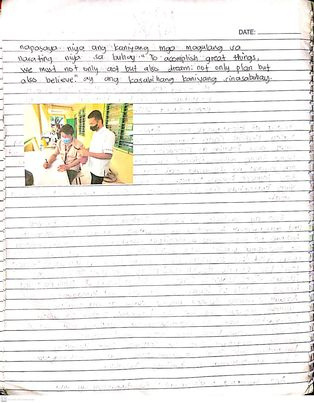 DATE:
napasaya niya ang kaniyang mga magulang sa
narating niya sa buhay. "To accomplish great things,
we must not only act but also dream: not only plan but
also believe" ay ang kasabihang kaniyang isinasabuhay.